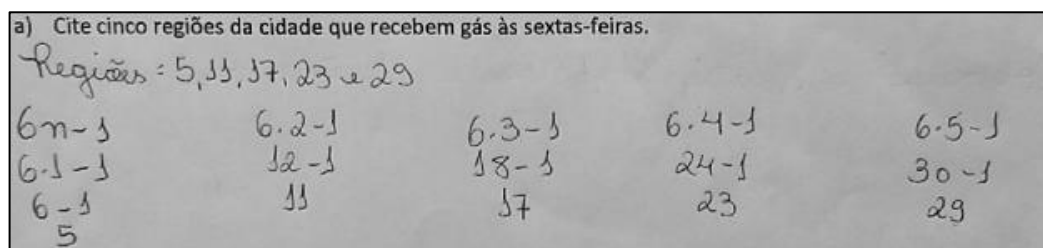 a) Cite cinco regiões da cidade que recebem gás às sextas-feiras.
Regiões: 5, 11, 17, 23 e 29
6n-1 6.2-1 6.3-1 6.4-1 6.5-1
6.1-1 12-1 18-1 24-1 30-1
6-1 11 17 23 29
5